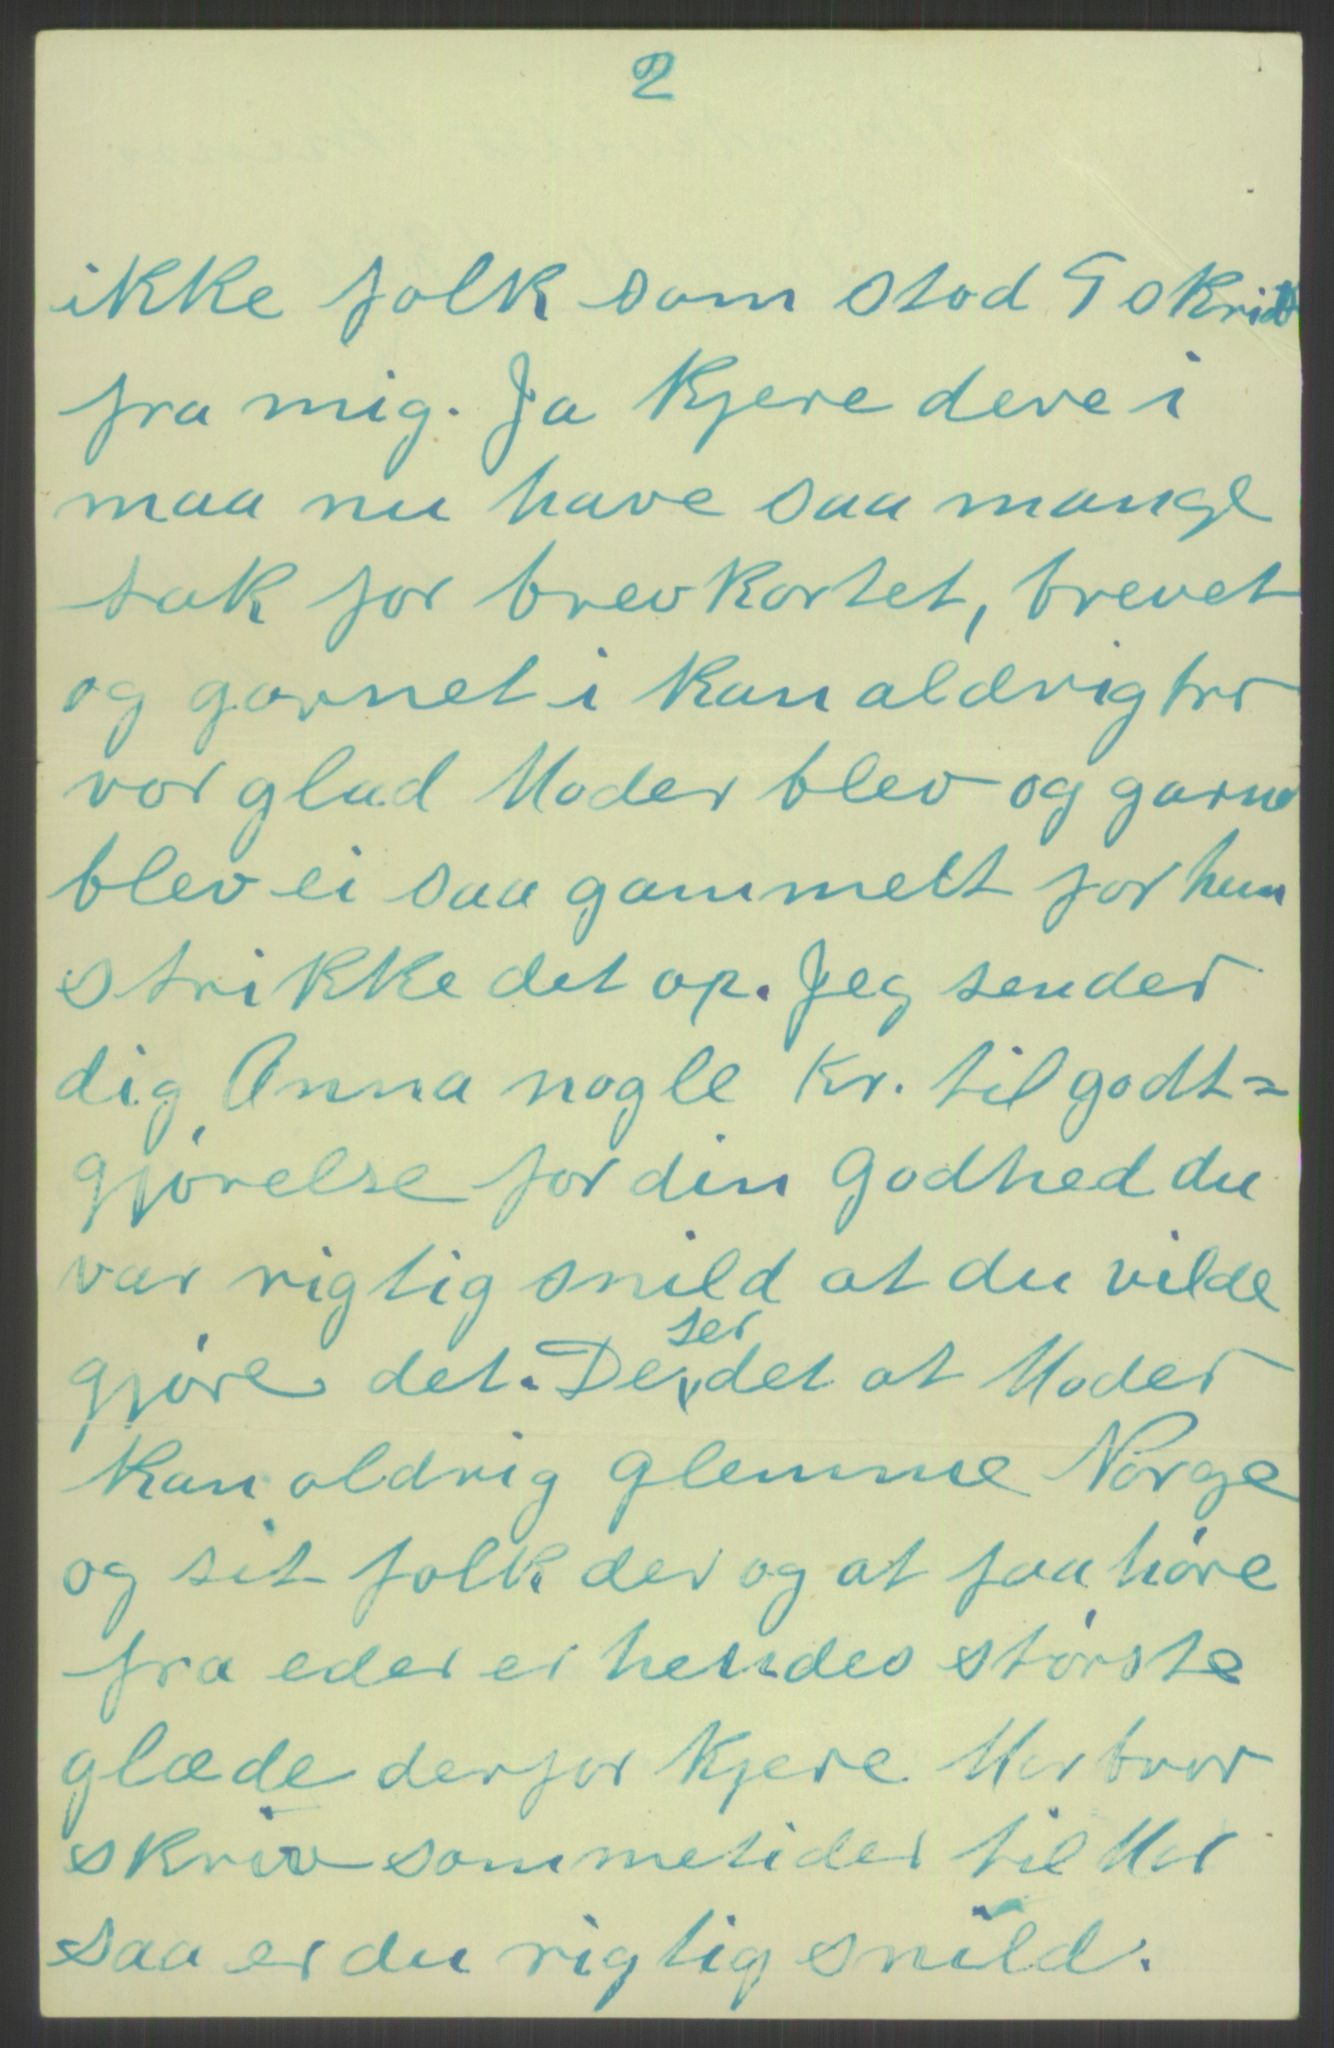 2
ikke folk som stod 5 skridt
fra mig. Ja kjere dere i
maa nu have saa mange
tak for brevkortet, brevet
og garnet i kan aldrig tro
vor glad Moder blev og garne
blev ei saa gammelt for hun
strikke det op. Jeg sender
dig Anna nogle Kr. til godt=
gjørelse for din Godhed du
var rigtig snild at du vilde
gjøre det. De ser det at Moder
kan aldrig glemme Norge
og sit folk der og at faa høre
fra eder er hendes største
glæde derfor kjere Morbror
skriv sommetider til Mor
saa er du rigtig snild.